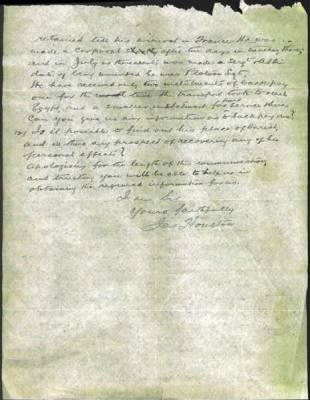 retained till his arrival in France. He was
made a Corporal after two days in
and in July as thirteenth was made a Sergt. At the
date of being wounded he was Platoon Sgt.
He has received only two instalments of back pay
one for the time the transport took to reach
Egypt and a smaller instalment for service there.
Can you give us any information as to back pay due?
Is it possible to find out his place of burial
and is there any prospect of recovering any of his
personal effects?
Apologising for the length of this communication
and trusting you will be able to help us in
obtaining the required information for us.
I am Sir
Yours faithfully
Jas Houston